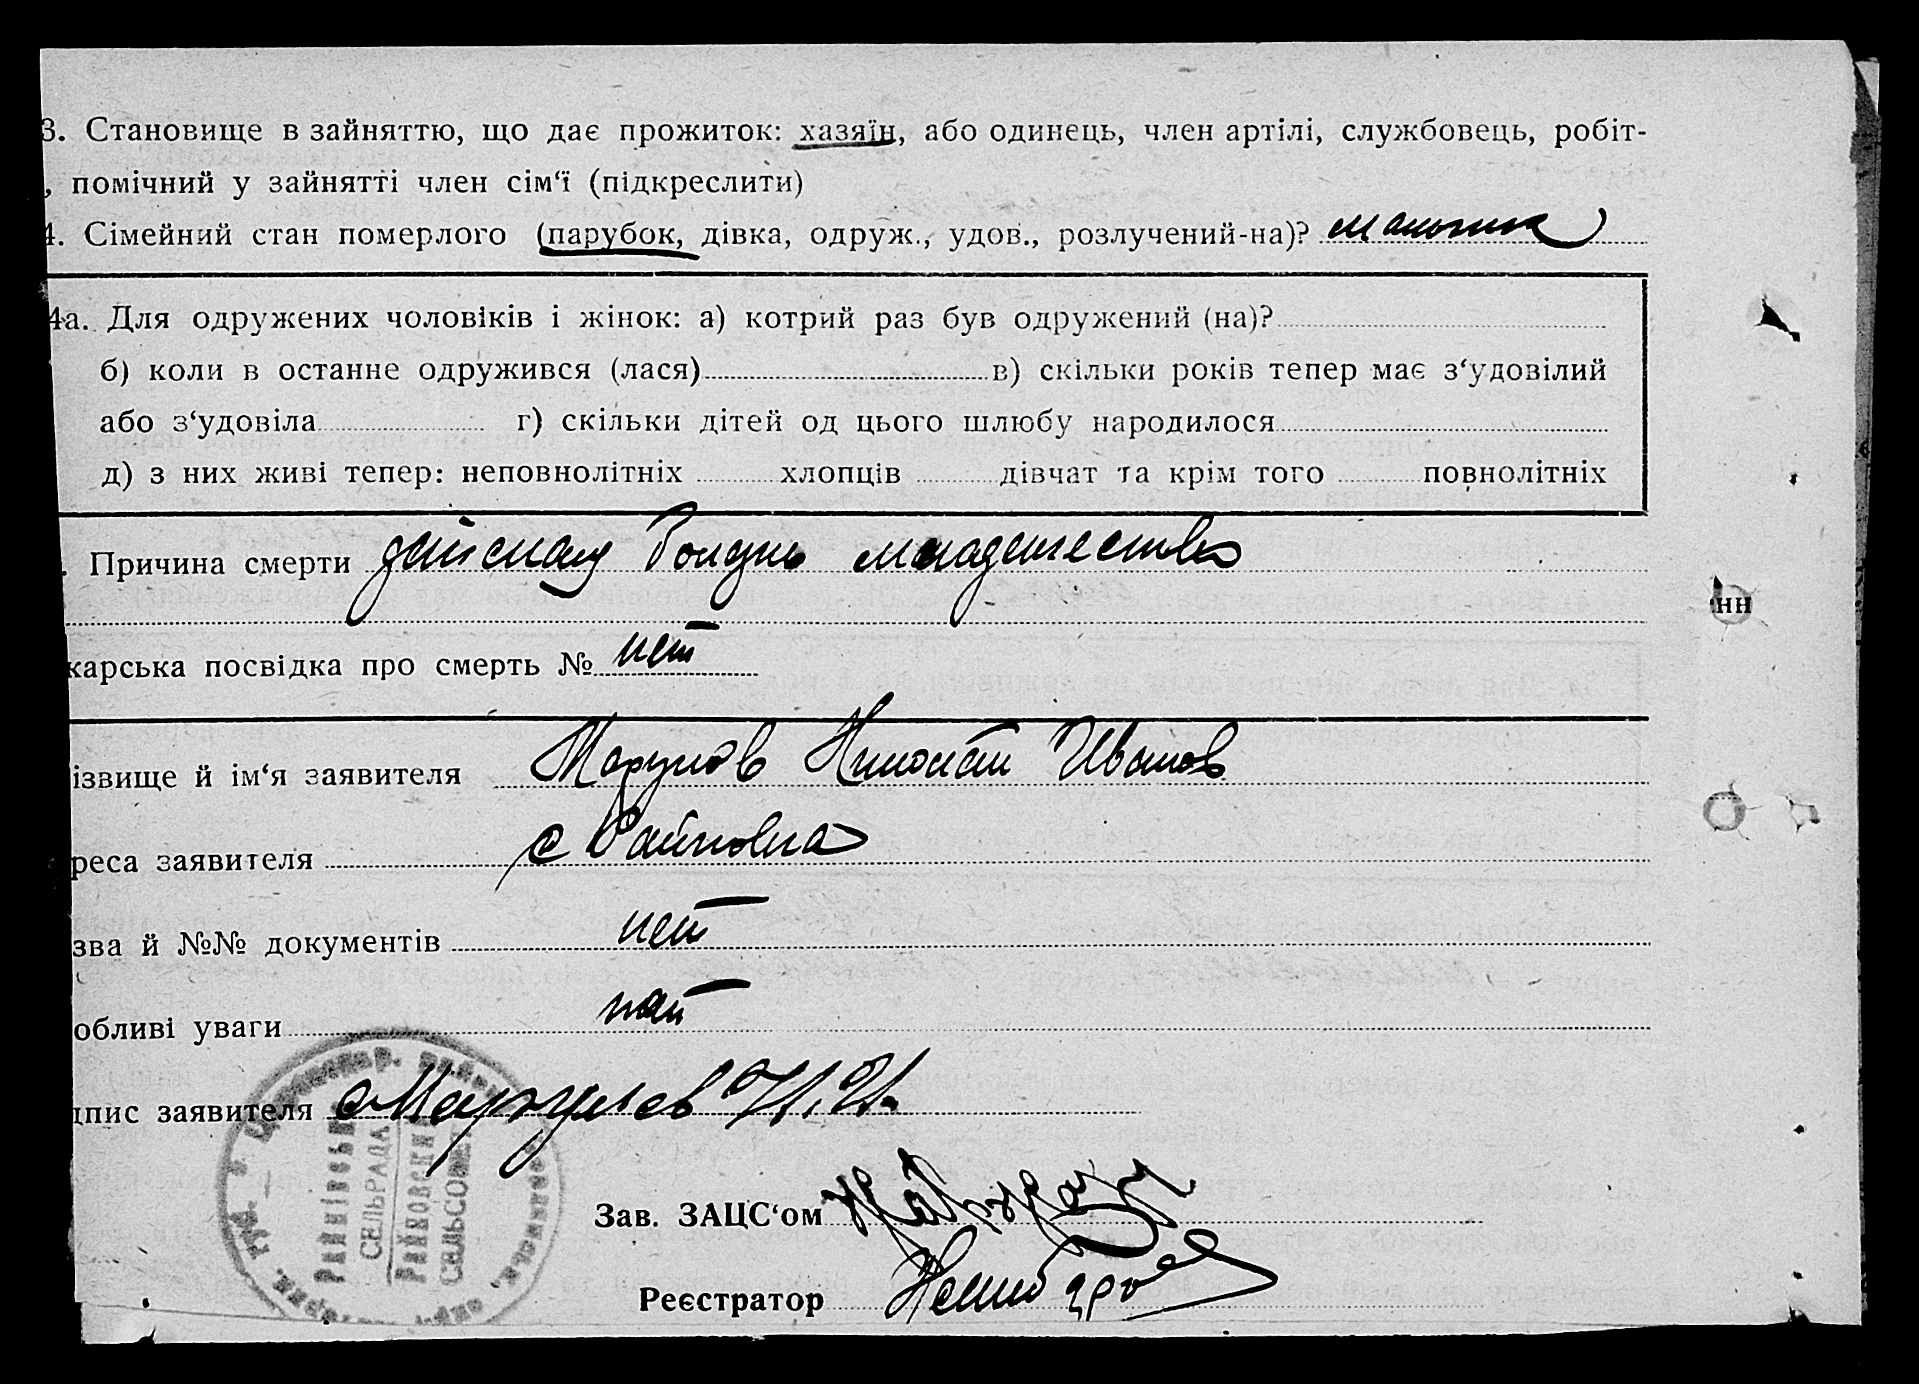 3. Становище в зайняттю, що дає прожиток: хазяїн, або одинець, член артілі, службовець, робіт-
, помічний у зайнятті член сім‘ї (підкреслити)
4. Сімейний стан померлого (парубок, дівка, одруж., удов., розлучений-на)? мальчик
4а. Для одружених чоловіків і жінок: а) котрий раз був одружений (на)?
б) коли в останне одружився (лася) в) скільки років тепер має з‘удовілий
або з‘удовіла г) скільки дітей од цього шлюбу народилося
д) з них живі тепер: неповнолітніх хлопців дівчат та крім того повнолітніх
. Причина смерти болезнь младенчества
карська посвідка про смерть № нет
ізвище й ім‘я заявителя Маруков Николай Иванов
реса заявителя с Райновка
зва й №№ документів нет
обливі уваги нет
дпис заявителя Н. И.
Зав. ЗАЦС‘ом
Реєстратор
СЕЛЬРАДА
СЕЛЬСОВЕТ
нн